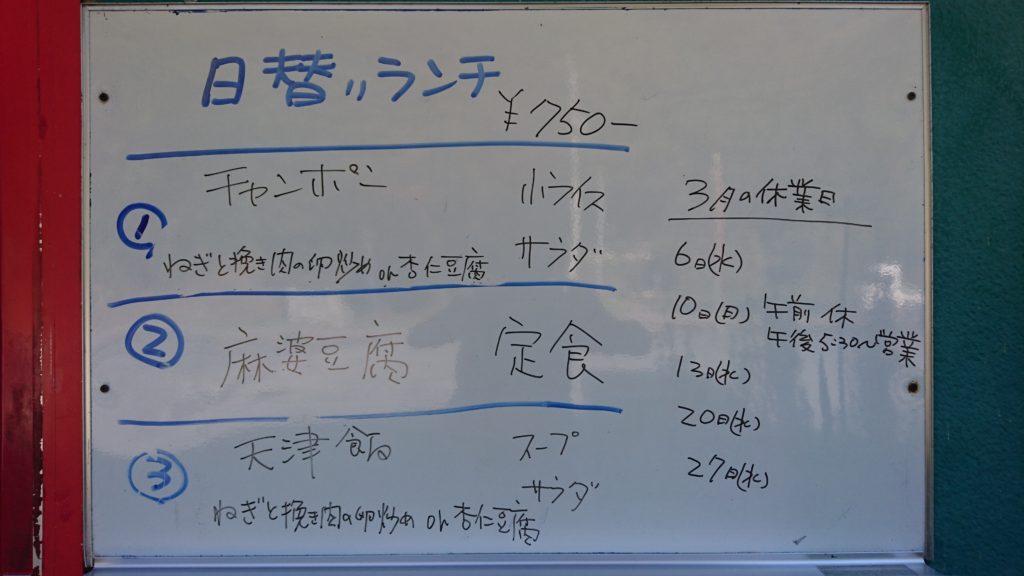 日替りランチ
¥750ー
① チャンポン 小ライス
サラダ
ねぎと挽き肉の卵炒め or 杏仁豆腐
② 麻婆豆腐 定食
③ 天津飯 スープ
サラダ
ねぎと挽き肉の卵炒め or 杏仁豆腐
3月の休業日
6日(水)
10日(日) 午前 休
午後5:30〜営業
13日(水)
20日(水)
27日(水)